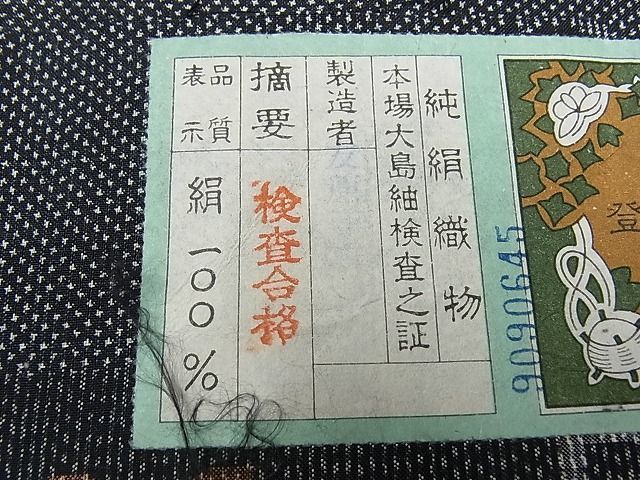 純絹織物
本場大島紬検査之証
製造者
摘要
検査合格
品質
表示
絹一〇〇%
9090645
登